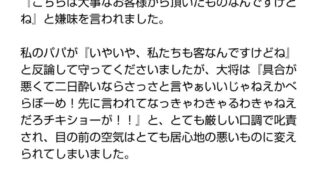 『こちらは大事なお客様から頂いたものなんですけど
ね』と嫌味を言われました。
私のパパが『いやいや、私たちも客なんですけどね』
と反論して守ってくださいましたが、大将は『具合が
悪くて二日酔いならさっさと言やぁいいじゃねえかべ
らぼーめ！先に言われてなっきゃわきゃるわきゃねえ
だろチキショーが！！』と、とても厳しい口調で叱責
され、目の前の空気はとても居心地の悪いものに変え
られてしまいました。